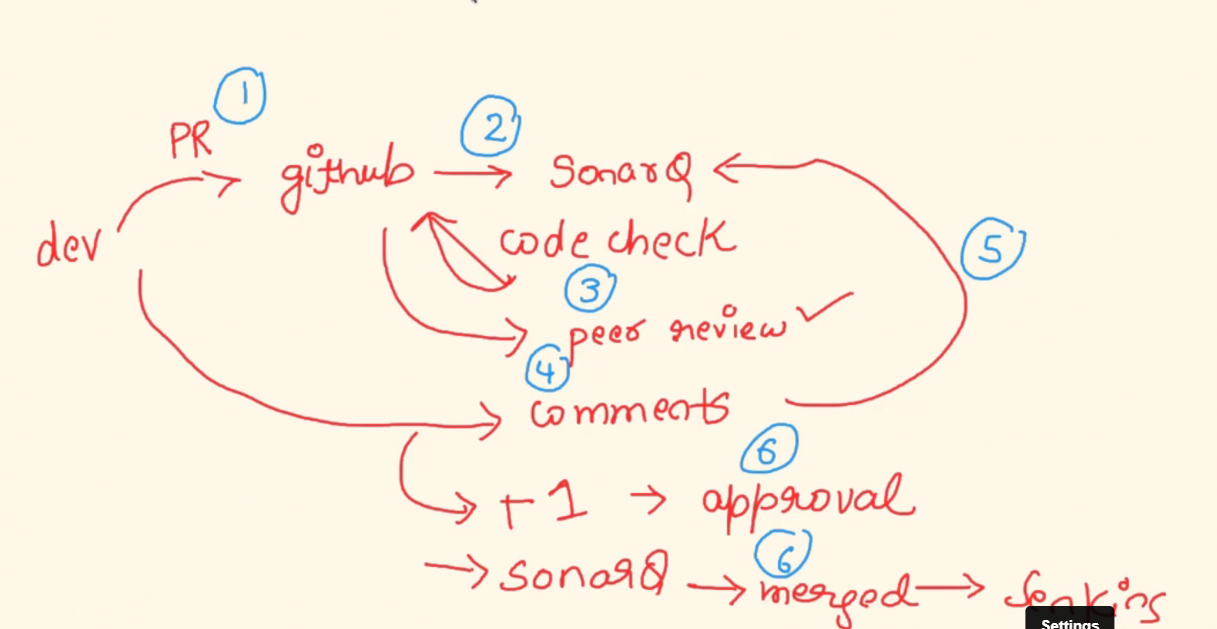 1
PR
2
github → SonarQ
dev
code check
5
3
peer review ✓
4
comments
6
+1 → approval
6
→ sonarQ → merged → Jenkins
Settings